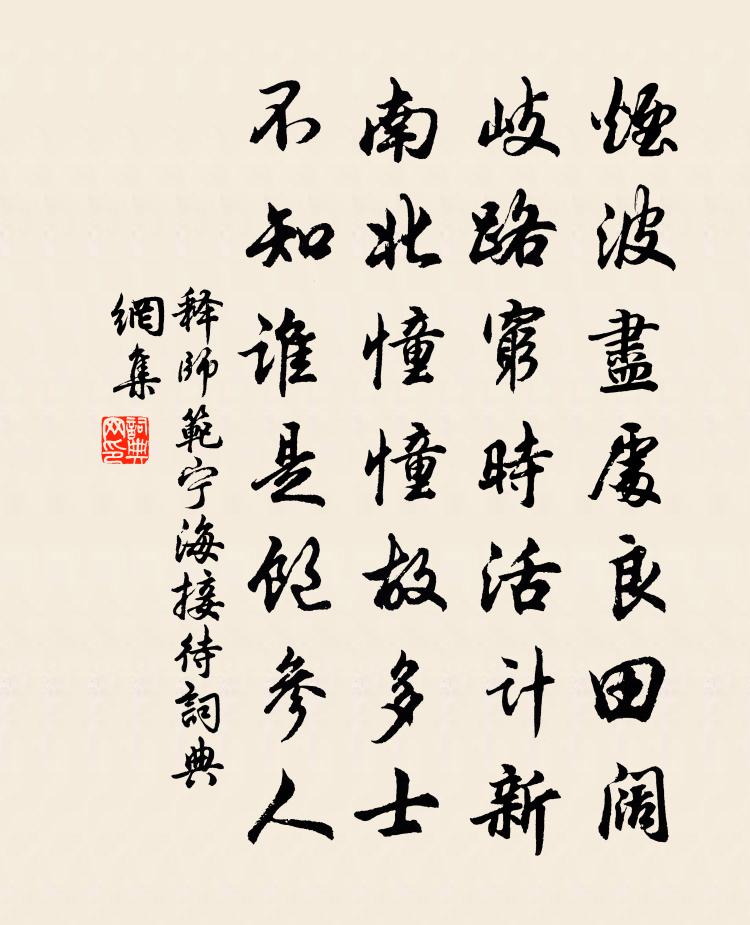 煙波盡處良田闊
岐路窮時活計新
南北憧憧故多士
不知誰是飽參人
释師範宁海接待詞典
網集
詞典
网印